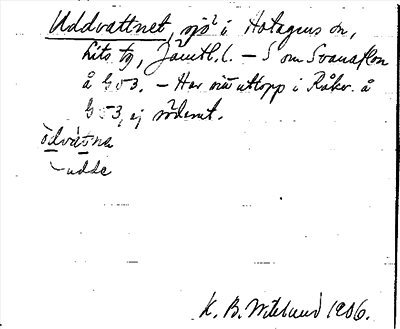 Uddvattnet, sjö i Hotagens sn,
Lits tg, Jämtl. l. – S om Svanaflon
å G 53. – Har sitt utlopp i Råkv. å
G 53, ej söderut.
ödvátne
– udde
K. B. Wiklund 1906.